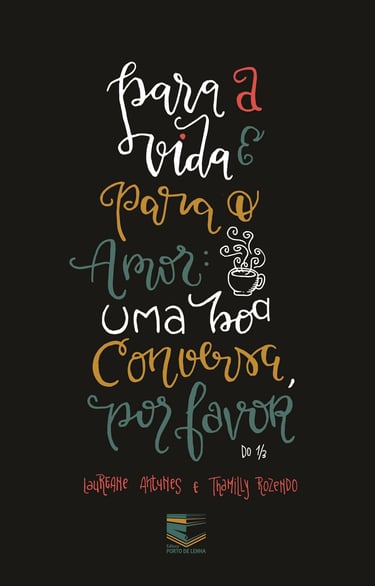 para a
vida e
para o
Amor:
uma boa
Conversa,
por favor
DO 1/3
LAUREANE ANTUNES E THAMILLY ROZENDO
Editora
PORTO DE LENHA